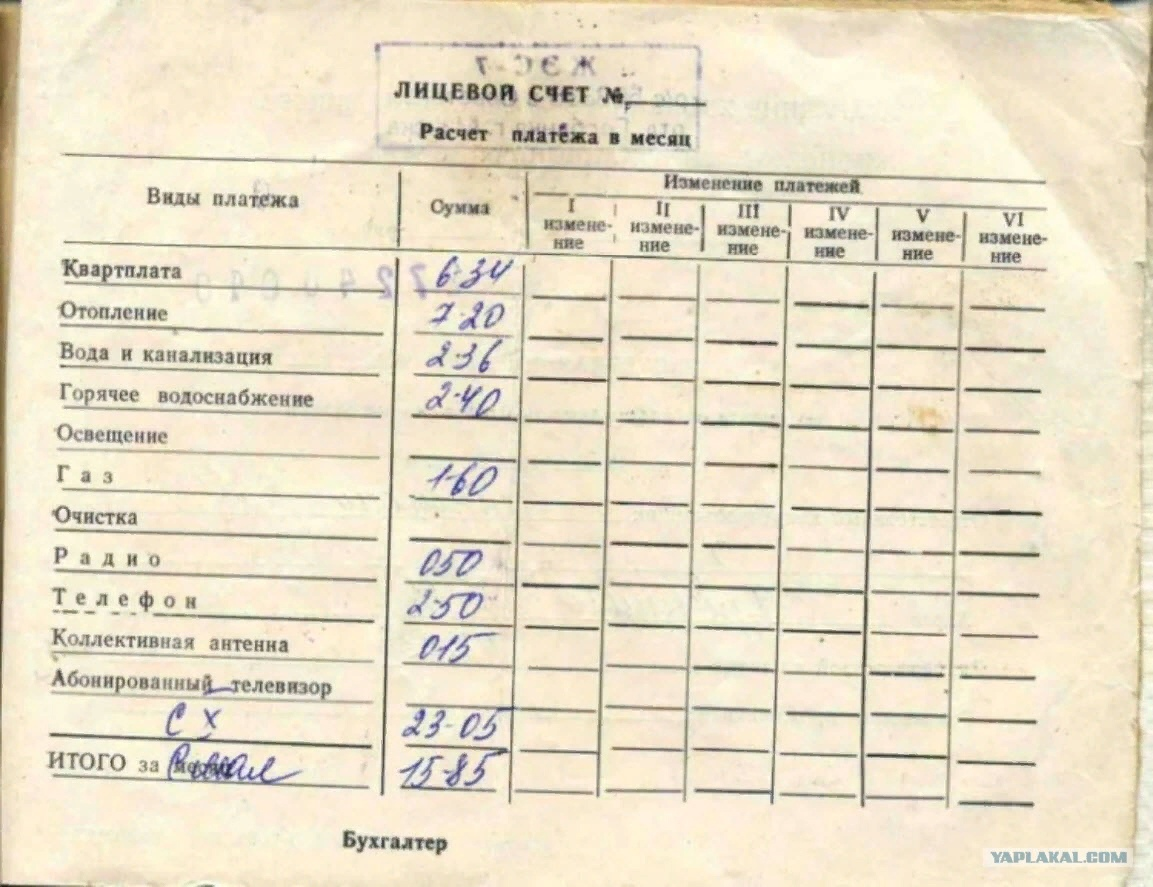 ЖЭС-7
ЛИЦЕВОЙ СЧЕТ №
Расчет платежа в месяц
Виды платежа Сумма Изменение платежей
I измене-ние II измене-ние III измене-ние IV измене-ние V измене-ние VI измене-ние
Квартплата 6-34
Отопление 7-20
Вода и канализация 2-36
Горячее водоснабжение 2-40
Освещение
Газ 1-60
Очистка
Радио 050
Телефон 2-50
Коллективная антенна 015
Абонированный телевизор
С Х 23-05
ИТОГО за 15-85
Бухгалтер
YAPLAKAL.COM